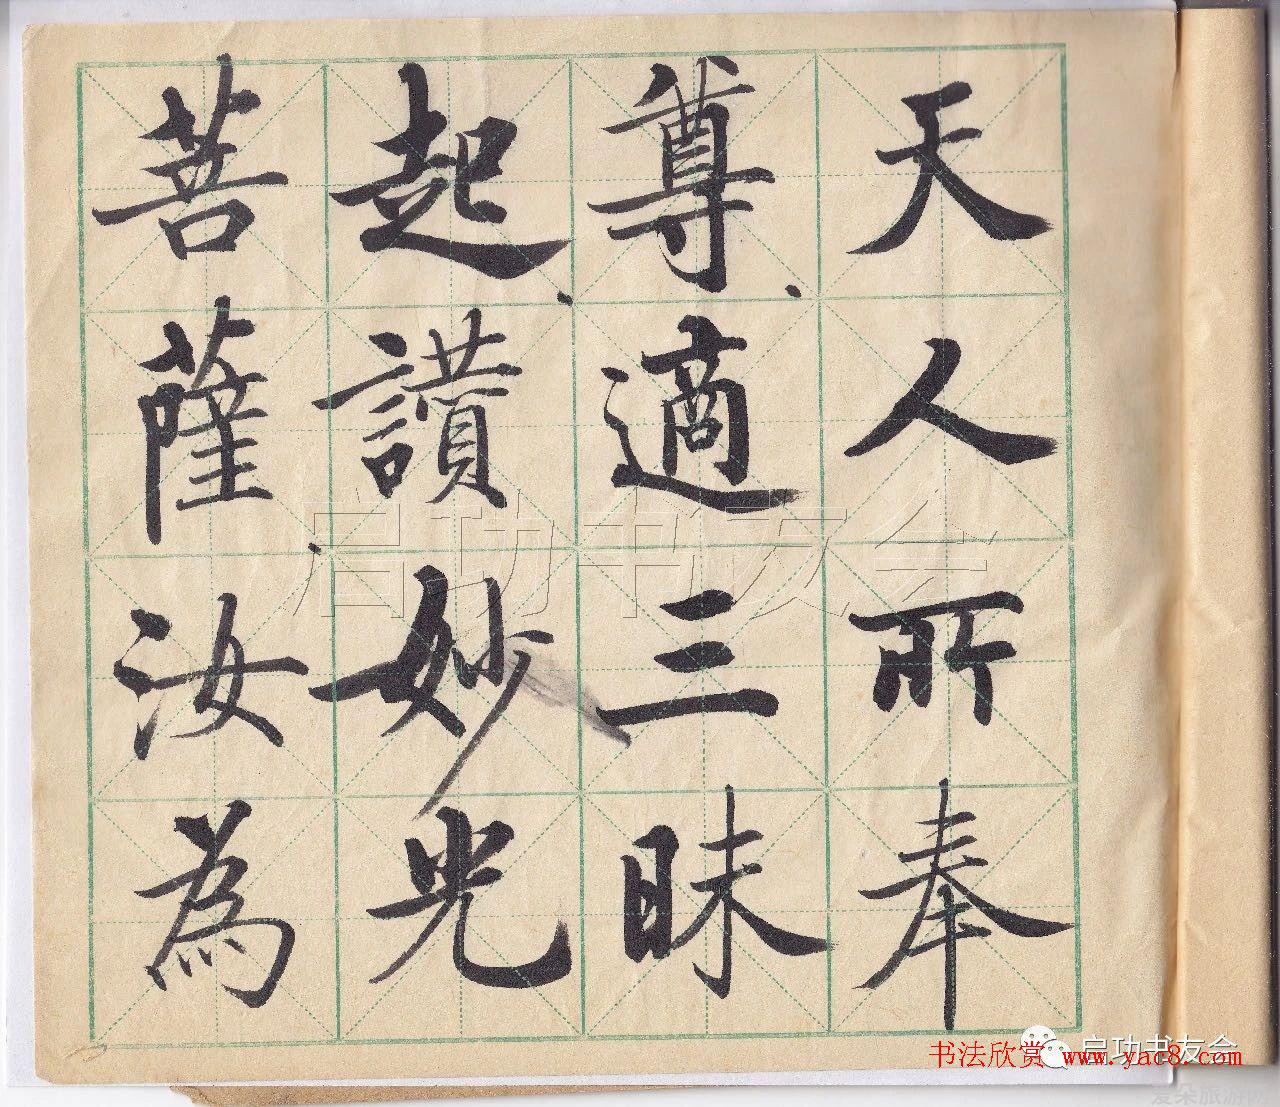 天人所奉
尊、適三昧
起、讃妙光
菩薩、汝為
启功书友会
书法欣赏 www.yac8.com
启功书友会
爱朵旅游网